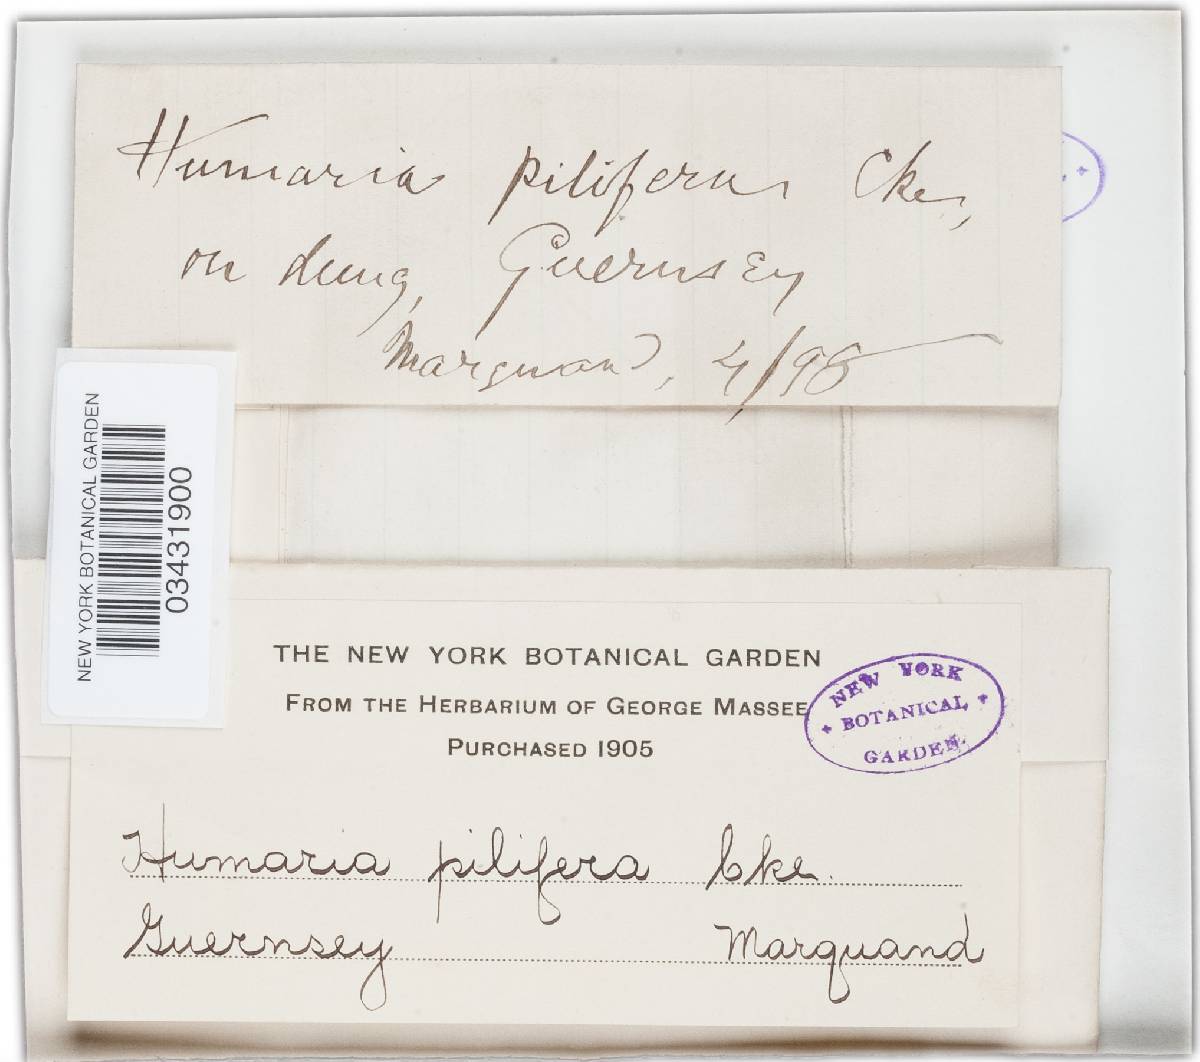 Humaria pilifera Cke,
on dung, Guernsey
Marquand, 4/98
NEW YORK BOTANICAL GARDEN
03431900
THE NEW YORK BOTANICAL GARDEN
FROM THE HERBARIUM OF GEORGE MASSEE
PURCHASED 1905
NEW YORK
BOTANICAL
GARDEN
Humaria pilifera Cke.
Guernsey Marquand